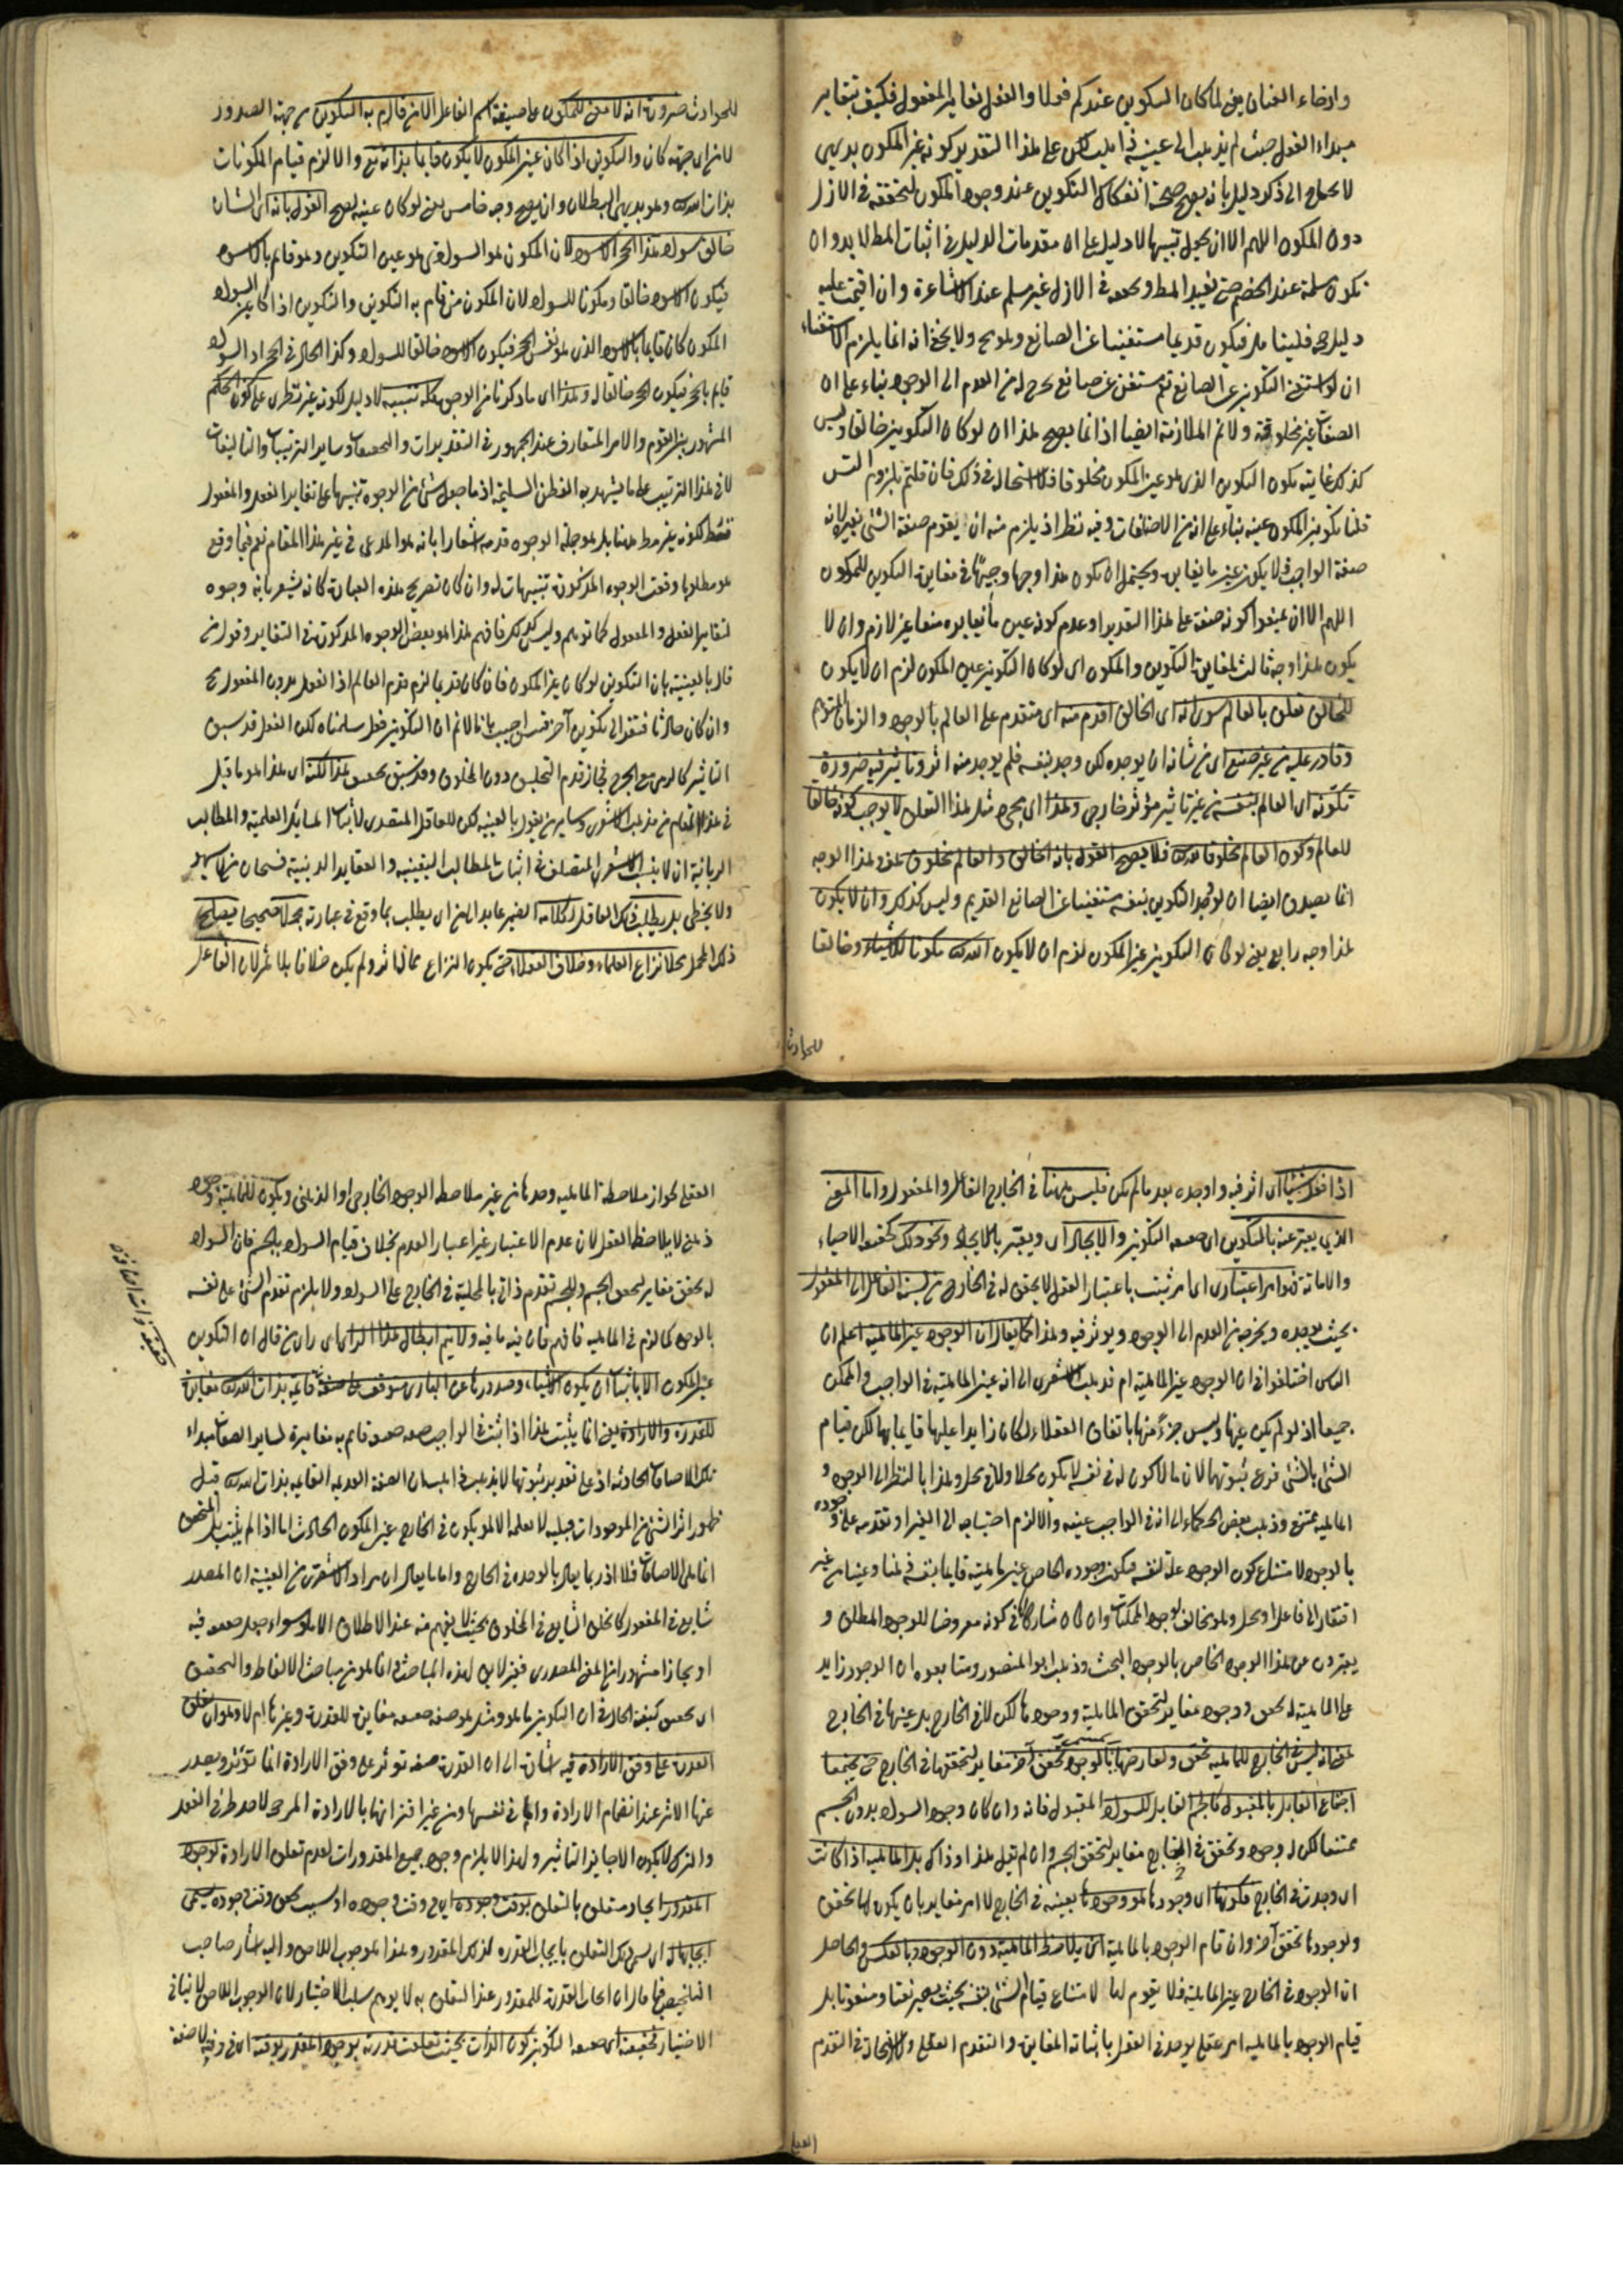 وارخاء العنان يعنى لما كان التكوين عندكم فعلا والفعل تغاير المفعول فكيف بتغاير
مبداء الفعل حيث لم يذهب الى عينيته ذاهب لكن على هذا التقدير كونه غير المكون بديهى
لا يحتاج الى ذكر دليل بانه يصح صحة انفكاك التكوين عند وجود المكون لتحققه فى الازل
دون المكون اللهم الا ان يجعل تنبيها لا دليل على ان مقدمات الدليل فى اثبات المط لا بد وان
تكون مسلمة عند الخصم حتى تفيد المط وتحققه فى الازل غير مسلم عند الاشاعرة وان اقيمت عليه
دليل فيكون قديما مستغنيا عن الصانع وهو مح ولا يخفى انه انما يلزم الاستغناء
ان لو استغنى التكوين عن الصانع ثم مستغن عن صانع يخرجه من العدم الى الوجود بناء على ان
الصفات غير مخلوقة ولا ثم الملازمة ايضا اذ انما يصح هذا ان لو كان التكوين خالقا وليس
كذلك غايته يكون التكوين الذى هو عين المكون مخلوقا فلا استحالة فى ذلك فان قلتم يلزم التس
قلنا تكوين المكون عينه بناء على انه من الاضافات وفيه نظر اذ يلزم منه ان يقوم صفة الشئ بغيره لانه
صفة الواجب فلا يكون عين ما يغايره ويحتمل ان يكون هذا وجها وجيها فى مغايرة التكوين للمكون
اللهم الا ان يمنعوا كونه صفة على هذا التقدير او عدم كونه عين ما يغايره منعا غير لازم وان لا
يكون هذا وجه ثالث لمغايرة التكوين والمكون اى لو كان التكوين عين المكون لزم ان لا يكون
للخالق تعلق بالعالم سوى انه اى الخالق اقدم منه اى متقدم على العالم بالوجود والزمان المتوهم
وقادر عليه من غير صنع اى من شانه ان يوجده لكن وجد بنفسه فلم يوجد منه اثر وتاثير فيه ضرورة
تكونه اى العالم بنفسه من غير تاثير مؤثر خارجى وهذا اى مجرد مثل هذا التعلق لا يوجب كونه خالقا
للعالم وكون العالم مخلوقا له فلا يصح القول بانه الخالق والعالم مخلوق هف هذا الوجه
انما يصدق ايضا ان لو وجد التكوين بنفسه مستغنيا عن الصانع القديم وليس كذلك وان لا يكون
هذا وجه رابع يعنى لو كان التكوين عين المكون لزم ان لا يكون الله تعالى مكونا للاشياء وخالقا
للحوادث
للحوادث ضرورة انه لا معنى للمكون على صيغة اسم الفاعل الا من قام به التكوين من جهة الصدور
لا من اى جهة كان والتكوين اذا كان عين المكون لا يكون قايما بذاته تع والا لزم قيام المكونات
بذات الله تعالى وهو بديهى البطلان وان يصح وجه خامس يعنى لو كان عينه يصح القول بانه اى الشان
خالق سواد هذا الحجر الاسود لان المكون هو السواد حتى هو عين التكوين وهو قائم بالاسود
فيكون الاسود خالقا ومكونا للسواد لان المكون من قام به التكوين والتكوين اذا كان عين السواد
المكون كان قايما بالاسود الذى هو نفس الحجر فيكون الاسود خالقا للسواد وكذا الحال فى الحجر اذ السواد
قايم بالحجر فيكون الحجر خالقا له وهذا اى ما ذكرنا من الوجوه كله تنبيه لا دليل لكونه غير نظرى على كون الحكم
المشهور بين القوم والامر المتعارف عند الجمهور فى التقديرات والتحقيقات وساير الترتيبات والتاليفات
لا فى هذا الترتيب على ما يشهد به الفطن السليمة اذ ما جعل شئ من الوجوه تنبيها على تغاير الفعل والمفعول
فقط لكونه غير مط ههنا بل هو جملة الوجوه قدمه اشعارا بانه هو المدعى فى غير هذا المقام نعم فيما وقع
هو مطلوبا وقعت الوجوه المذكورة تنبيهات له وان كان تصريح هذه العبارة كانه يشعر بانه وجوه
لتغاير الفعل والمفعول كما توهم وليس كذلك فافهم هذا هو بعض الوجوه المذكورة فى التغاير وقول من
قال بالعينية بان التكوين لو كان غير المكون فان كان قديما لزم قدم العالم اذ الفعل بدون المفعول مح
وان كان حادثا فتقر الى تكوين آخر فتس اجيب بانا لا ثم ان التكوين فعل سلمناه لكن الفعل قد سبق
التاثير كالرمى مع الجرح فجاز قدم التخليق دون المخلوق وقد سبق تحقيق هذا لكنه اى هذا هو ما قيل
فى هذا المقام من مذهب الاشعرى وساير من يقول بالعينية لكن للعاقل المتصدى لاثبات المسايل العلمية والمطالب
الربانية ان لا ينسب الاشعرى المتصلف فى اثبات المطالب اليقينية والعقايد الدينية فسبحان من لا يسهو
ولا يخطى بل يطلب ذلك العاقل لكلامه الضمير عايد الى من اى يطلب بما وقع فى عبارته محملا صحيحا يصلح
ذلك المحمل محلا نزاع العلماء وخلاف العقلاء حتى يكون النزاع مما له اثر ولم يكن خلافا بلا ثمر لان الفاعل
اذا فعل شيئا اى اثر فيه واوجده بعد ما لم يكن فليس ههنا فى الخارج الا الفاعل والمفعول واما المعنى
الذى يعبر عنه بالتكوين اى حقيقة التكوين والايجاد اى ويعبر بالايجاد ونحو ذلك كحقيقة الاحياء
والاماتة فهو امر اعتبارى اى امر ثبت باعتبار العقل لا يحقق له فى الخارج من نسبة الفاعل الى المفعول
بحيث يوجده ويخرجه من العدم الى الوجود ويوثر فيه وهذا كما يقال ان الوجود عين الماهية اعلم ان
الناس اختلفوا فى ان الوجود عين الماهية ام لا فذهب الاشعرى الى انه عين الماهية فى الواجب والممكن
جميعا اذ لو لم يكن عينها وليس جزءً منها باتفاق العقلاء لكان زايدا عليها قايما بها لكن قيام
الشئ بالشئ فرع ثبوتهما لان ما لا كون له فى نفسه لا يكون محلا ولا فى محل وهذا بالنظر الى الوجود و
الماهية ممتنع وذهب بعض الحكماء الى انه فى الواجب عينه والا لزم احتياجه الى الغير او تقدمه على وجوده
بالوجود لامتناع كون الوجود علة لنفسه فيكون وجوده الخاص عين ماهيته قايما بنفسه فمنا وعينا من غير
افتقار الى فاعل او محل وهو مخالف لوجود الممكنات وان كان مشاركا لها فى كونه معروضا للوجود المطلق و
يعبرون عن هذا الوجود الخاص بالوجود البحت وذهب ابو المنصور ومتابعوه ان الوجود زايد
على الماهية له تحقق ووجود مغاير لتحقق الماهية ووجودها لكن لا فى الخارج بل عينها فى الخارج
بمعنى انه ليس فى الخارج للماهية تحقق ولعارضها بالوجود تحقق آخر مغاير لتحققها فى الخارج حتى يجتمعا
اجتماع القابل بالمقبول كالجسم القابل للسواد المقبول فانه وان كان وجود السواد بدون الجسم
ممتنعا لكن له وجود وتحقق فى الخارج مغاير لتحقق الجسم وان لم تقبل هذا وذاك بل الماهية اذا كانت
اى وجدت فى الخارج فكونها اى وجودها هو وجودها بعينه فى الخارج لا امر مغاير بان يكون لها تحقق
ولوجودها تحقق آخر وان قام الوجود بالماهية اى يلاحظ الماهية دون الوجود وبالعكس والحاصل
ان الوجود فى الخارج عين الماهية فلا يقوم لها لامتناع قيام الشئ بنفسه بحيث يصير نعتا ومنعوتا بل
قيام الوجود بالماهية امر عقلى يوجد فى العقل باثباته المغايرة والتقدم العقلى والاتحاد فى التقدم
العقلى
العقلى لجواز ملاحظة الماهية وحدها من غير ملاحظة الوجود الخارجى او الذهنى ويكون للماهية وجود
ذهنى لا يلاحظه العقل لان عدم الاعتبار غير اعتبار العدم بخلاف قيام السواد بالجسم فان السواد
له تحقق مغاير لتحقق الجسم وللجسم تقدم ذاتى بالمحلية فى الخارج على السواد ولا يلزم تقدم الشئ على نفسه
بالوجود كما لزم فى الماهية فافهم فان فيه ما فيه ولا يتم ابطال هذا الراى اى راى من قال ان التكوين
عين المكون الا باثبات ان يكون الاشياء وصدورها عن البارى يتوقف على صفة قايمة بذات الله تعالى مغايرة
للقدرة والارادة يعنى انما يثبت هذا اذا ثبت فى الواجب صفة حقيقية قايم به مغايرة لساير الصفات مبداء
تلك الاضافات الحادثة اذ على تقدير ثبوتها لا يذهب ذاهب ان الصفة القديمة القائمة بذات الله تعالى قبل
ظهور اثر الشئ من الموجودات قبلية لا يعلمه الا هو يكون فى الخارج عين المكون الحادث اما اذا لم يثبت بل المتحقق
انما هى الاضافات فلا اذ ربما يقال بالوحدة فى الخارج واما ما يقال ان مراد الاشعرى من العينية ان المصدر
شايع فى المفعول كالخلق الشايع فى المخلوق بحيث لا يفهم منه عند الاطلاق الا هو سواء جعل حقيقة فيه
او مجازا مشهورا من المعنى المصدرى فغير لايق لهذه المباحث وانما هو من مباحث الالفاظ والتحقيق
اى تحقيق كيفية الحال فى ان التكوين ما هو وشانه هو صفة حقيقية مغايرة للقدرة وغيرها ام لا وهو ان تعلق
القدرة على وفق الارادة فيه اشارة الى ان القدرة صفة توثر على وفق الارادة انما تؤثر ويصدر
عنها الاثر عند انضمام الارادة واما فى نفسها ومن غير اقترانها بالارادة المرجحة لاحد طرفى الفعل
والترك لا يكون الا جايز التاثير ولهذا لا يلزم وجود جميع المقدورات لعدم تعلق الارادة لوجود
المقدور ايجاد متعلق بالتعلق بوقت وجوده اى فى وقت وجوده او بسبب تحقق وقت وجوده يسمى
ايجابا له اى يسمى ذلك التعلق بايجاب القدرة لذلك المقدور وهذا هو الوجوب اللاحق واليه اشار صاحب
التلخيص فيما قال ان ايجاب القدرة للمقدور عند التعلق به لا يوهم سلب الاختيار لان الوجوب اللاحق لا ينافى
الاختيار فحقيقته اى حقيقة التكوين كون الذات بحيث تعلقت قدرته بوجود المقدور لوقته اى فى وقته لا صفة